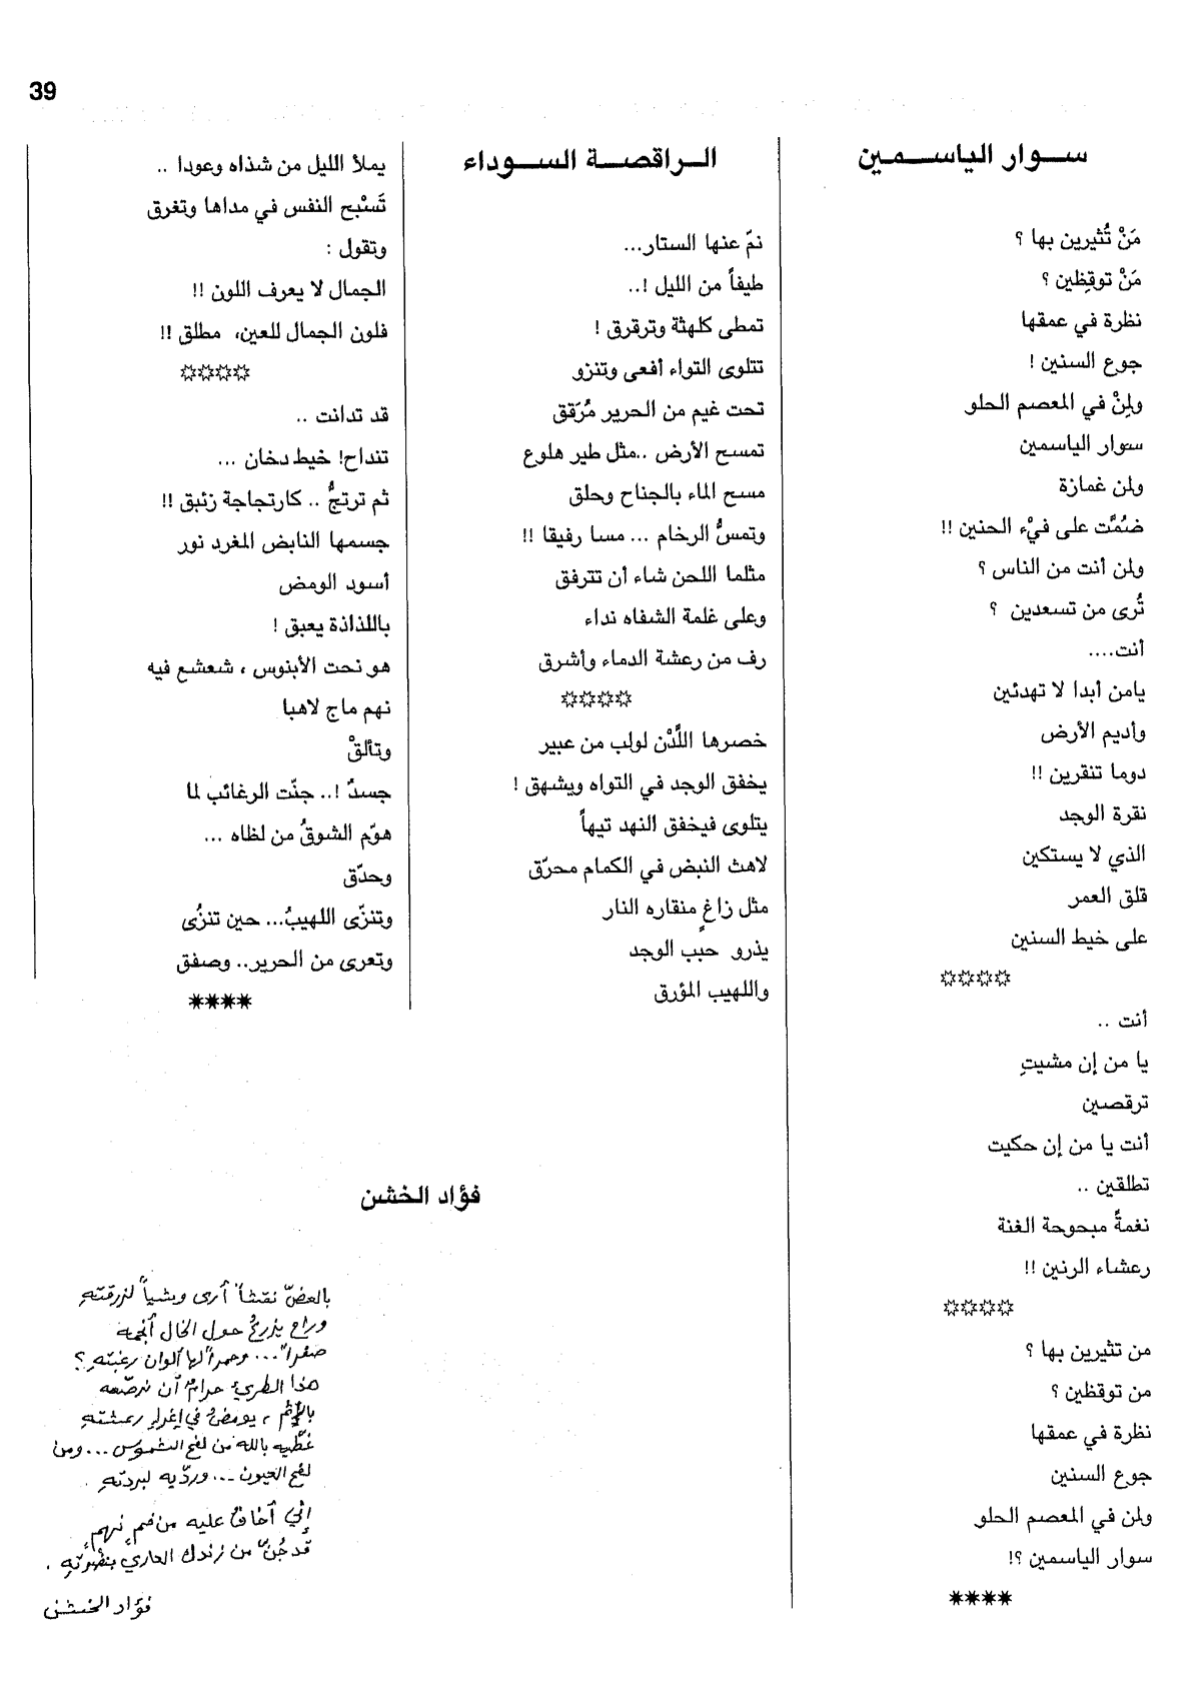 39
سوار الياسمين
مَنْ تُثيرين بها ؟
مَنْ توقِظين ؟
نظرة في عمقها
جوع السنين !
ولِنْ في المعصم الحلو
سوار الياسمين
ولن غمازة
ضُمَّت على فيْء الحنين !!
ولن أنت من الناس ؟
تُرى من تسعدين ؟
أنت....
يامن أبدا لا تهدئين
وأديم الأرض
دوما تنقرين !!
نقرة الوجد
الذي لا يستكين
قلق العمر
على خيط السنين
☼☼☼☼
أنت ..
يا من إن مشيتِ
ترقصين
أنت يا من إن حكيت
تطلقين ..
نغمةً مبحوحة الغنة
رعشاء الرنين !!
☼☼☼☼
من تثيرين بها ؟
من توقظين ؟
نظرة في عمقها
جوع السنين
ولن في المعصم الحلو
سوار الياسمين ؟!
****
الراقصة السوداء
نمّ عنها الستار...
طيفاً من الليل !..
تمطى كلهثة وترقرق !
تتلوى التواء أفعى وتنزو
تحت غيم من الحرير مُرَقق
تمسح الأرض ..مثل طير هلوع
مسح الماء بالجناح وحلق
وتمسُّ الرخام ... مسا رفيقا !!
مثلما اللحن شاء أن تترفق
وعلى غلمة الشفاه نداء
رف من رعشة الدماء وأشرق
☼☼☼☼
خصرها اللَّدْن لولب من عبير
يخفق الوجد في التواه ويشهق !
يتلوى فيخفق النهد تيهاً
لاهث النبض في الكمام محرّق
مثل زاغٍ منقاره النار
يذرو حبب الوجد
واللهيب المؤرق
يملأ الليل من شذاه وعودا ..
تَسْبح النفس في مداها وتغرق
وتقول :
الجمال لا يعرف اللون !!
فلون الجمال للعين، مطلق !!
☼☼☼☼
قد تدانت ..
تنداح! خيط دخان ...
ثم ترتجُّ .. كارتجاجة زئبق !!
جسمها النابض المغرد نور
أسود الومض
باللذاذة يعبق !
هو نحت الأبنوس ، شعشع فيه
نهم ماج لاهبا
وتألقْ
جسدٌ !.. جنّت الرغائب لما
هوّم الشوقُ من لظاه ...
وحدّق
وتنزّى اللهيبُ... حين تنزُى
وتعرى من الحرير.. وصفق
****
فؤاد الخشن
بالعضّ نقشاً أرى وشياً لزرقتهِ
وراح يزرعُ حول الخال أنجمه
صفراً... وحمراً لها ألوان رغبتهِ ؟
هذا الطريُّ حرامٌ أن نرصّعه
بالإثم ، يومضُ في إغراءِ رعشتهِ
غطّيه بالله من لفح الشموس ... ومن
لفح العيون ... وردّيه لبردتهِ .
إنّي أخافُ عليه من فمٍ نهمٍ
قد جُنّ من زندك العاري بنضرتهِ .
فؤاد الخشن